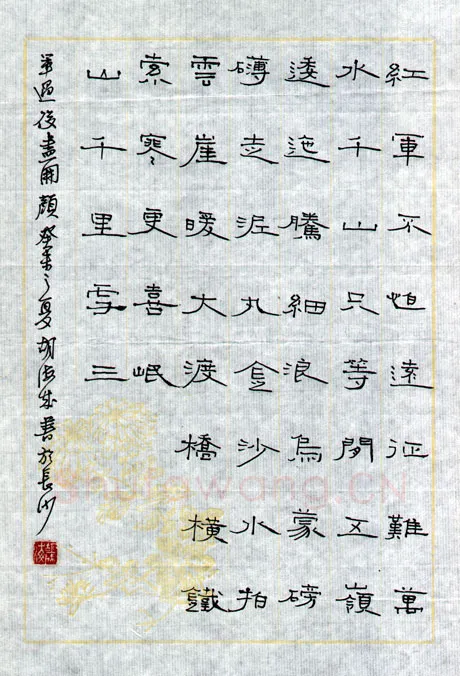 紅軍不怕遠征難萬
水千山只等閒五嶺
逶迤騰細浪烏蒙磅
礴走泥丸金沙水拍
雲崖暖大渡橋橫鐵
索寒更喜岷
山千里雪三
軍過後盡開顏 癸未之夏 書於長沙
Shufawang.CN